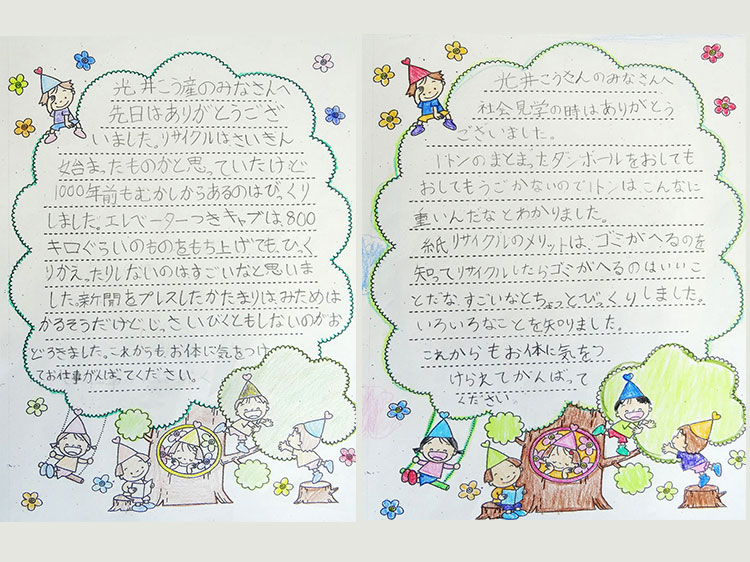 光井こう産のみなさんへ
先日はありがとうござ
いました。リサイクルはさいきん
始まったものかと思っていたけど
1000年前もむかしからあるのはびっくり
しました。エレベーターつきキャブは、800
キロぐらいのものをもち上げても、ひっく
りかえったりしないのはすごいなと思いま
した。新聞をプレスしたかたまりは、みためは
かるそうだけど、じっさいびくともしないのがお
どろきました。これからもお体に気をつけ
てお仕事がんばってください。
光井こうさんのみなさんへ
社会見学の時はありがとう
ございました。
1トンのまとまったダンボールをおしても
おしてもうごかないので1トンは、こんなに
重いんだなとわかりました。
紙リサイクルのメリットは、ゴミがへるのを
知ってリサイクルしたらゴミがへるのはいいこ
とだな、すごいなとちょっとびっくりしました。
いろいろなことを知りました。
これからもお体に気をつ
けられてがんばって
ください。